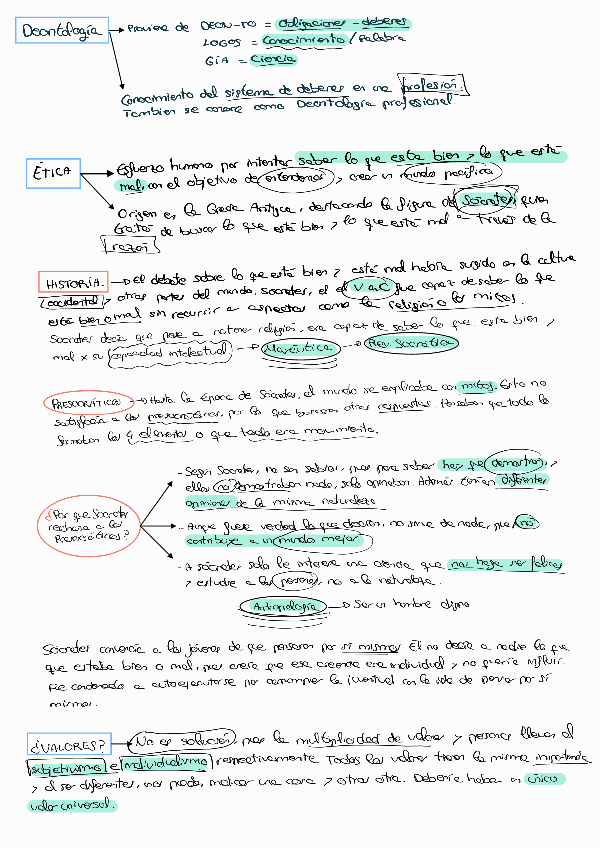 Deontología
Proviene de DEON-TO = obligaciones - deberes
LOGOS = Conocimiento / Palabra
GÍA = Ciencia
Conocimiento del sistema de deberes en una profesión.
También se conoce como Deontología profesional
ÉTICA
Esfuerzo humano por intentar saber lo que está bien y lo que está
mal, con el objetivo de entendernos y crear un mundo pacífico
Origen en la Grecia Antigua, destacando la figura de Sócrates, quien
trató de buscar lo que está bien y lo que está mal a través de la
razón
HISTORIA. → El debate sobre lo que está bien y está mal había surgido en la cultura
occidental y otras partes del mundo. Sócrates, el V a.C fue capaz de saber lo que
está bien o mal sin recurrir a aspectos como la religión o los mitos.
Sócrates decía que pese a no tener religión, era capaz de saber lo que está bien y
mal x su capacidad intelectual → Mayéutica → Rev. Socrática
PRESOCRÁTICOS → Hasta la época de Sócrates, el mundo se explicaba con mitos. Esto no
satisfacía a los presocráticos, por lo que buscaron otras respuestas. Pensaban que todo lo
formaban los 4 elementos o que todo era movimiento.
¿Por qué Sócrates
rechaza a los
Presocráticos?
- Según Sócrates, no son sabios, pues para saber hay que demostrar, y
ellos no demostraban nada, solo opinaban. Además tenían diferentes
opiniones de la misma naturaleza
- Aunque fuese verdad lo que decían, no sirve de nada, pues no
contribuye a un mundo mejor
- A Sócrates solo le interesa una ciencia que nos haga ser felices
y estudie a las personas, no a la naturaleza.
Antropología → Ser un hombre digno
Sócrates convencía a los jóvenes de que pensaran por sí mismos. Él no decía a nadie lo que
que estaba bien o mal, pues creía que esa creencia era individual y no quería influir.
Fue condenado a autoejecutarse por corromper la juventud con la idea de pensar por sí
mismos.
¿VALORES?
No es solución, pues la multiplicidad de valores y personas llevan al
subjetivismo e individualismo respectivamente. Todos los valores tienen la misma importancia
y al ser diferentes, uno puede indicar una cosa y otros otra. Debería haber un único
valor universal.